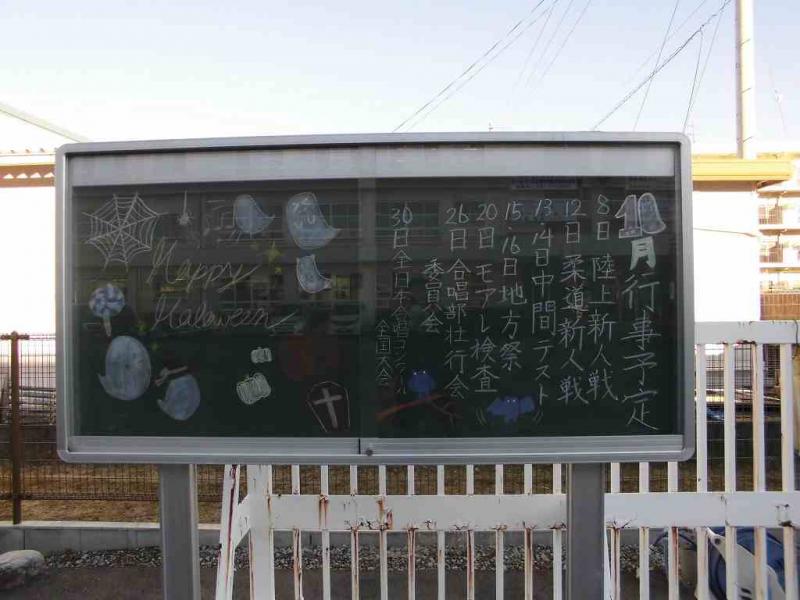 10月行事予定
8日 陸上新人戦
12日 柔道新人戦
13.14日中間テスト
15.16日地方祭
20日 モアレ検査
26日 合唱部壮行会
委員会
30日全日本合唱コンクール
全国大会
Happy
Haloween